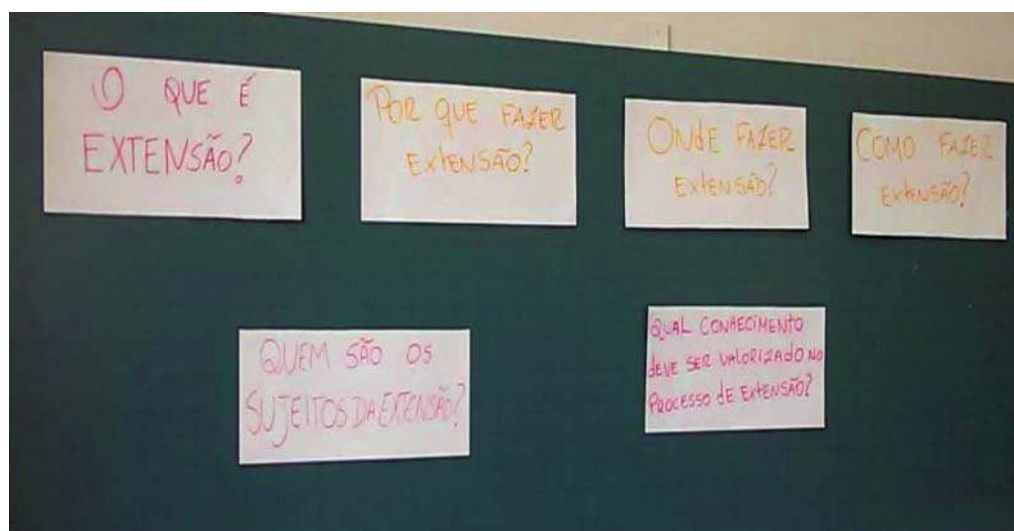 O QUE É
EXTENSÃO?
POR QUE FAZER
EXTENSÃO?
ONDE FAZER
EXTENSÃO?
COMO FAZER
EXTENSÃO?
QUEM SÃO OS
SUJEITOS DA EXTENSÃO?
QUAL CONHECIMENTO
DEVE SER VALORIZADO NO
PROCESSO DE EXTENSÃO?